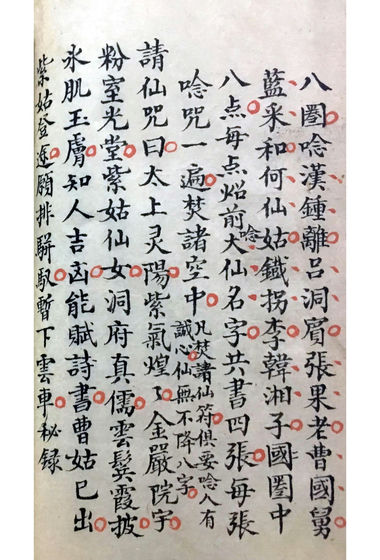 八圈唸漢鍾離呂洞賓張果老曹國舅
藍采和何仙姑鐵拐李韓湘子國圈中
八点每点炤前唸大仙名字共書四張每張
唸咒一遍焚諸空中
凡焚諸仙符俱要唸八有
誠心仙無不降八字
請仙咒曰太上灵陽紫氣煌〻金嚴院宇
粉室光堂紫姑仙女洞府真儒雲鬓霞披
氷肌玉膚知人吉㐫能賦詩書曹姑已出
紫姑登願排駢馭暫下雲車秘録